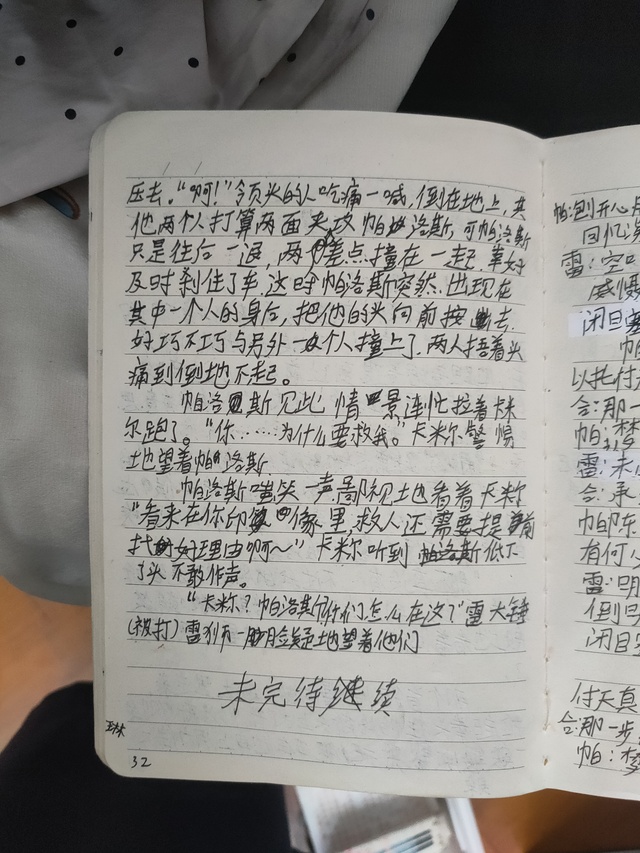 压去。“啊!”领头的人吃痛一喊,倒在地上,其
他两个人打算两面夹攻帕洛斯,可帕洛斯
只是往后一退,两个差点撞在一起,幸好
及时刹住了车,这时帕洛斯突然出现在
其中一个人的身后,把他的头向前按去,
好巧不巧与另外一个人撞上了,两人捂着头
痛到倒地不起。
帕洛斯见此情景连忙拉着卡米
尔跑了。“你……为什么要救我。”卡米尔警惕
地望着帕洛斯
帕洛斯嗤笑一声,鄙视地看着卡米尔
“看来在你印象里,救人还需要提前
找好理由啊~”卡米尔听到帕洛斯低下
了头不敢作声。
“卡米尔?帕洛斯?你们怎么在这?”雷大锤
(被打)雷狮一脸疑地望着他们
未完待继续
32
帕:别开心
回忆
雷:空口
威慑
闭目
帕
以托付
会:那一
帕:梦
雷:未
会:承
帕:陈
有何
雷:明
倒
闭目
付天真
会:那一步
帕:梦